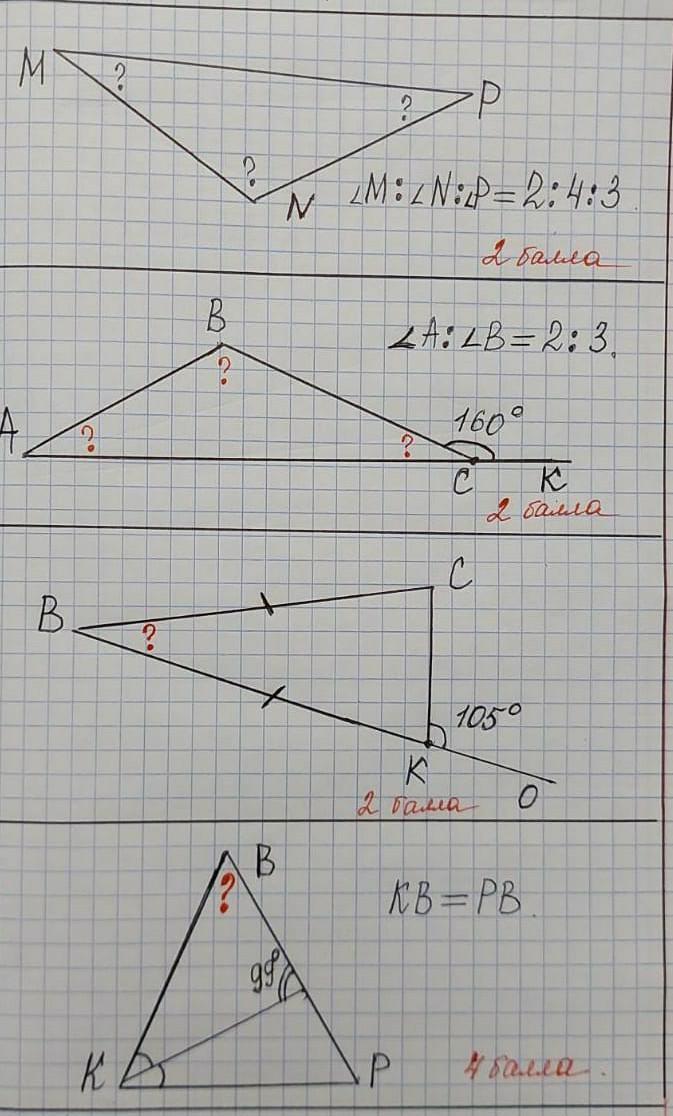 M
?
?
P
?
N
∠M:∠N:∠P=2:4:3.
2 балла
B
∠A:∠B=2:3.
?
A
?
?
160°
C
K
2 балла
C
B
?
105°
K
2 балла
O
B
?
KB=PB.
K
P
4 балла.